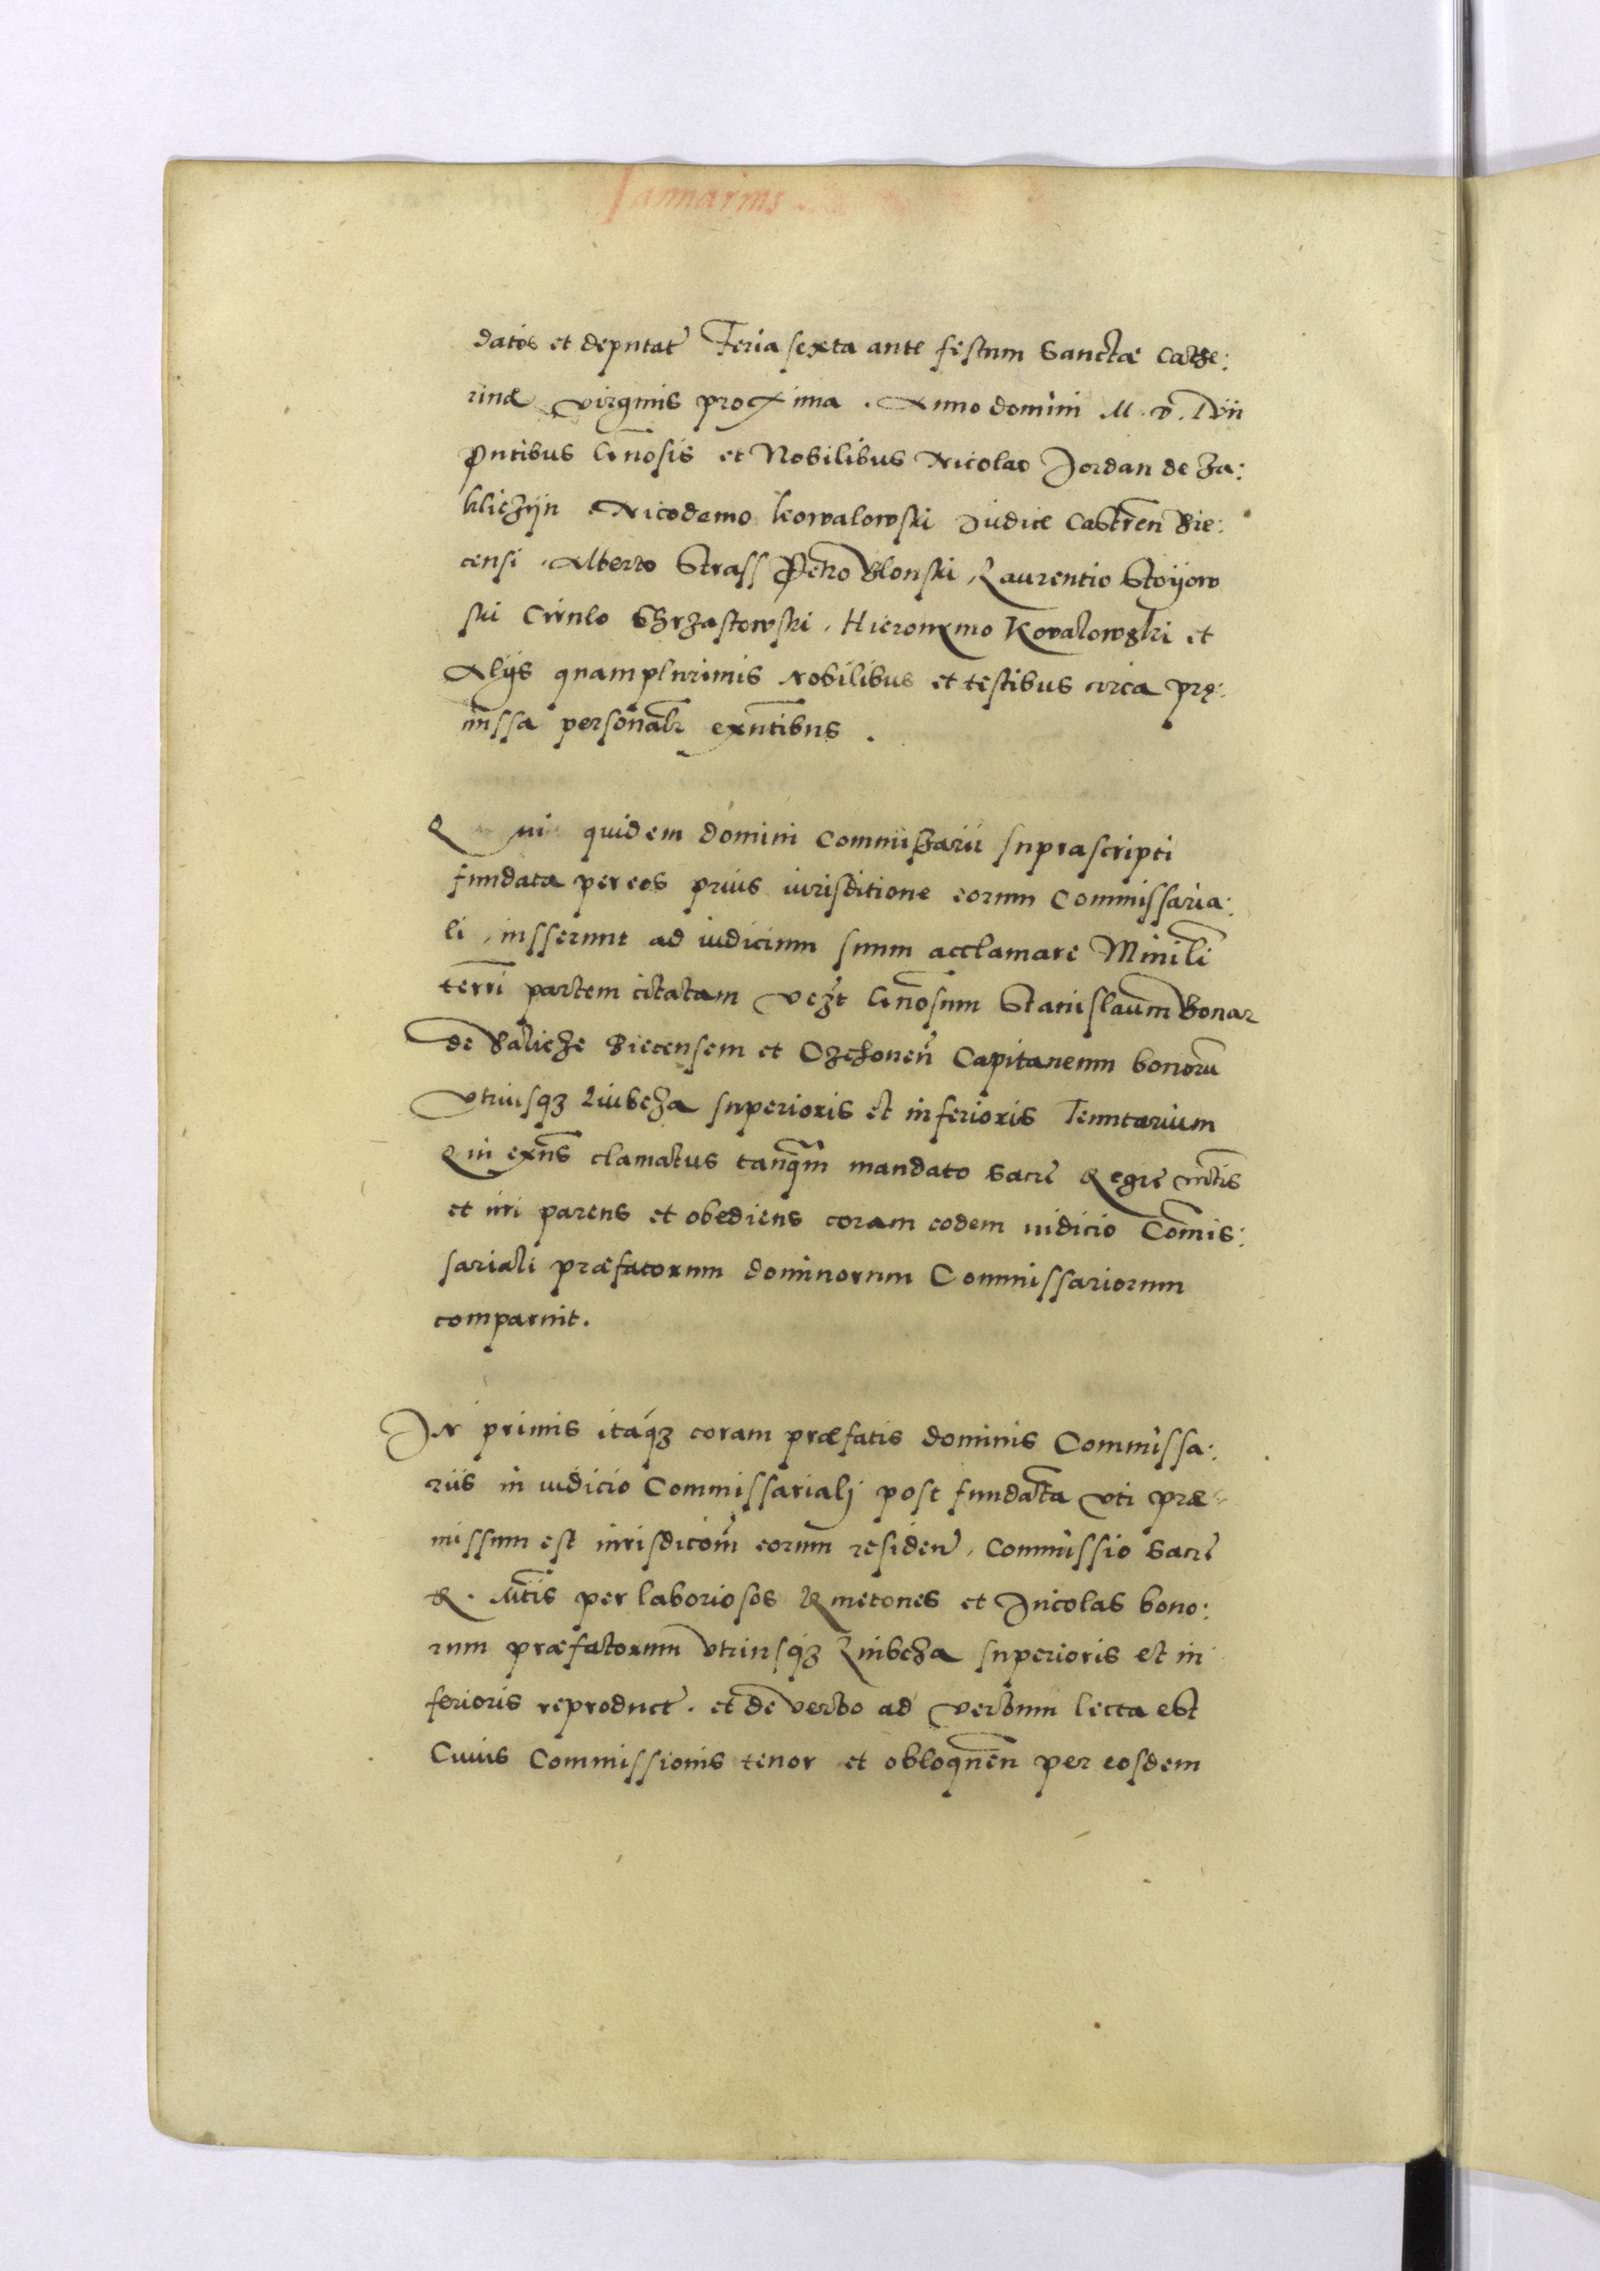 Januarius
datos et deputat Feria sexta ante festum Sanctæ Cathe:
rinæ Virginis proxima . Anno domini M . D . Lvii
Pntibus Gnosis et Nobilibus Nicolao Jordan de Za:
kliczijn Nicodemo Kowalowski Judice Castren Bie:
censi , Alberto Strass Petro Blonski Laurentio Stoijow
ski Cirulo Chrzastowski , Hieronymo Kovalowski et
Alijs quamplurimis nobilibus et testibus circa prę:
missa personalr exntibus .
Qui quidem domini Commissarii suprascripti
fundata per eos prius iurisditione eorum Commissaria:
li , iusserunt ad iudicium suum acclamare Minili
terri partem citatam vczt Gnosum Stanislaum Bonar
de Balicze Biecensem et Czchonen Capitaneum bonoru
Vtriusqz Liubcza superioris et inferioris Tenutarium
Qui exns clamatus tanqm mandato Sacre Regie mtis
et iuri parens et obediens coram eodem iudicio Comis:
sariali præfatorum dominorum Commissariorum
comparuit .
In primis itaqz coram præfatis dominis Commissa:
riis in iudicio Commissarialj post fundata vti præ
missum est iurisdicom eorum residen , Commissio Sacre
R . Mtis per laboriosos Kmetones et Incolas bono:
rum præfatorum vtriusqz Liubcza superioris et in
ferioris reproduct . et de verbo ad verbum lecta est
Cuius Commissionis tenor et obloquen per eosdem